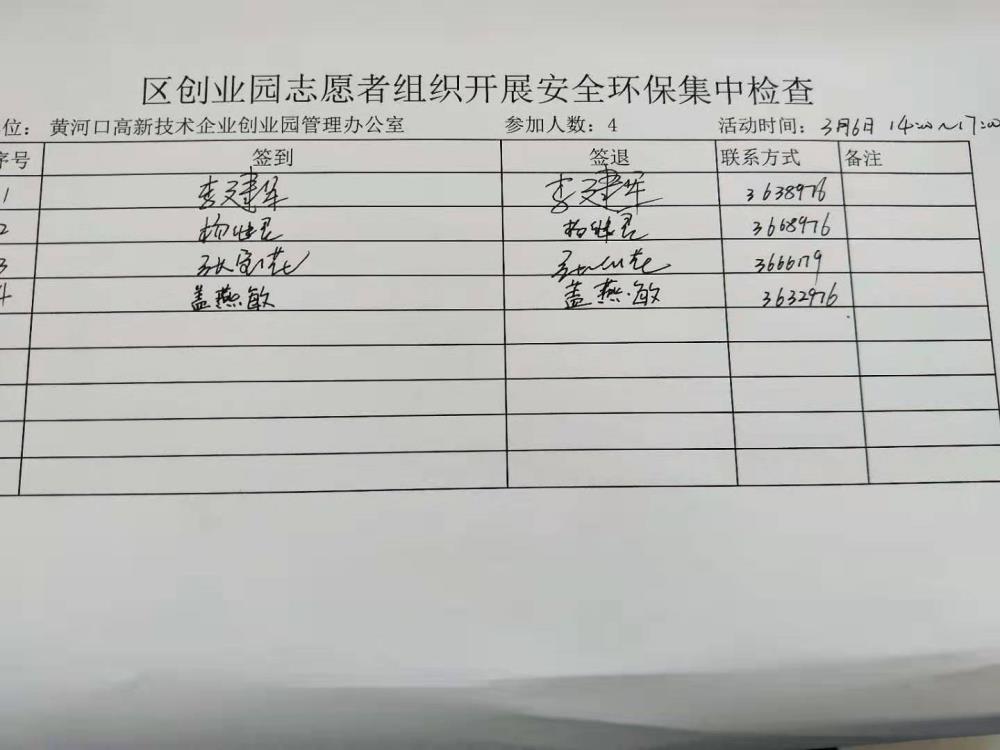 区创业园志愿者组织开展安全环保集中检查
位： 黄河口高新技术企业创业园管理办公室 参加人数：4 活动时间：3月6日 14:00~17:00
序号 签到 签退 联系方式 备注
1 李建军 李建军 3638976
2 3668976
3
4 盖燕敏 盖燕敏 3632976